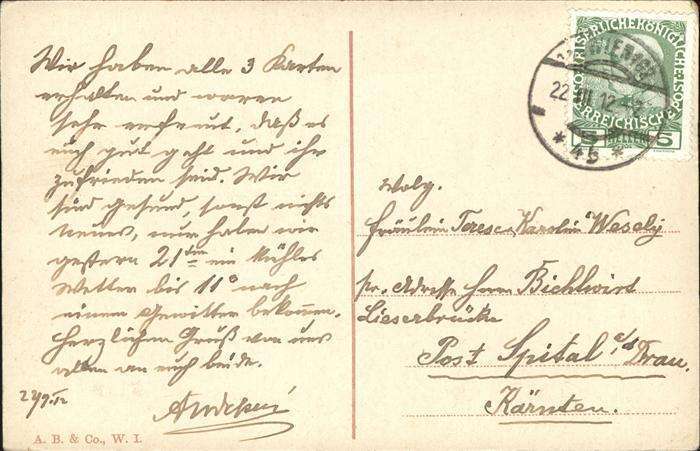 Wir haben alle 3 Karten
erhalten und waren
sehr erfreut, daß es
euch gut geht und ihr
zufrieden seid. Wir
sind gesund, sonst nichts
neues, nur haben wir
gestern 21ten ein kühles
Wetter bis 11° nach
einem Gewitter bekommen.
Herzlichen Gruß von uns
allen an euch beide.
A. B. & Co., W. I.
KAISERLICHE KÖNIGLICHE
ÖSTERREICHISCHE POST
5 HELLER 5
22. VII. 12
* 4b *
Wolg.
Fräulein Terese, Karolin Wesely
pr. Adresse Herrn Bichlwirt
Lieserbrücke
Post Spital a/d Drau.
Kärnten.